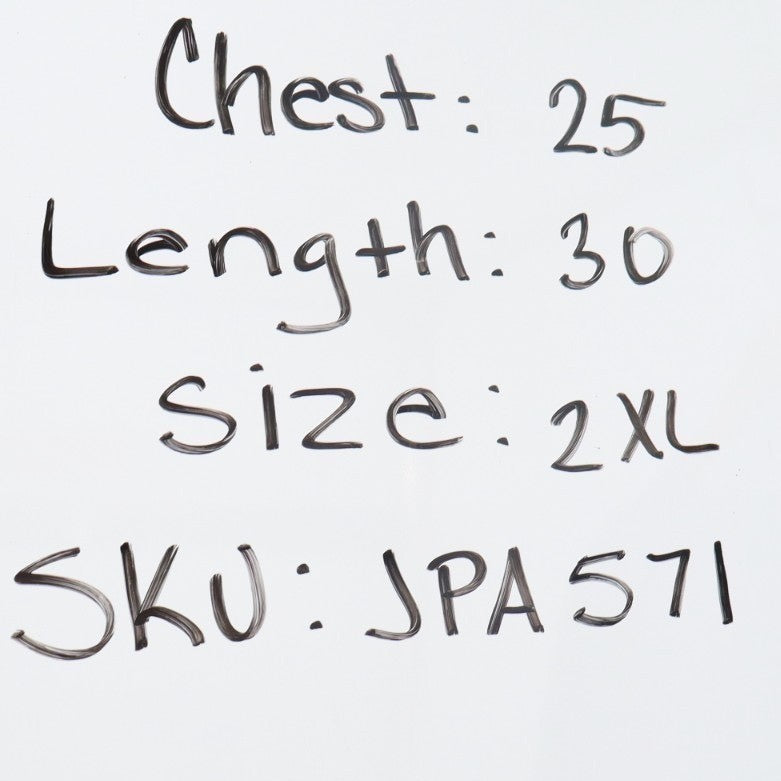 Chest: 25
Length: 30
Size: 2XL
SKU: JPA571